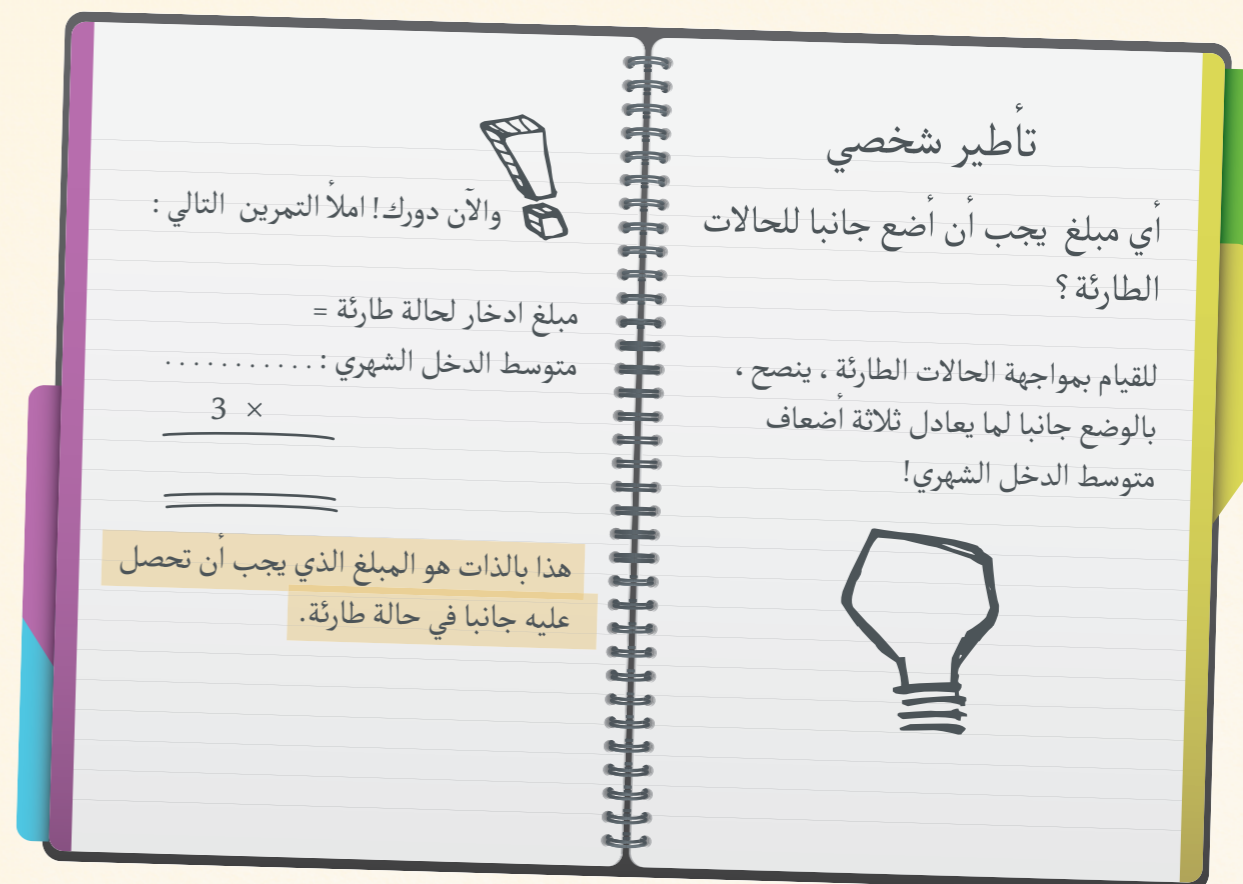 تأطير شخصي
أي مبلغ يجب أن أضع جانبا للحالات
الطارئة ؟
للقيام بمواجهة الحالات الطارئة ، ينصح ،
بالوضع جانبا لما يعادل ثلاثة أضعاف
متوسط الدخل الشهري!
والآن دورك! املأ التمرين التالي :
مبلغ ادخار لحالة طارئة =
متوسط الدخل الشهري : ............
× 3
هذا بالذات هو المبلغ الذي يجب أن تحصل
عليه جانبا في حالة طارئة.